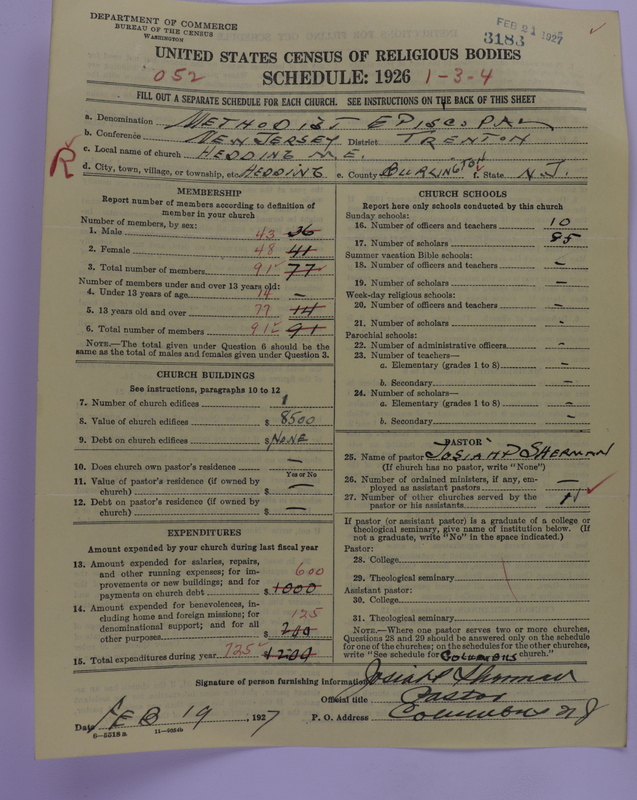 DEPARTMENT OF COMMERCE
BUREAU OF THE CENSUS
WASHINGTON
FEB 21 1927
3183
UNITED STATES CENSUS OF RELIGIOUS BODIES
052 SCHEDULE: 1926 1-3-4
FILL OUT A SEPARATE SCHEDULE FOR EACH CHURCH. SEE INSTRUCTIONS ON THE BACK OF THIS SHEET
a. Denomination METHODIST EPISCOPAL
b. Conference NEW JERSEY District TRENTON
c. Local name of church HEDDING M.E.
R d. City, town, village, or township, etc. HEDDING e. County BURLINGTON f. State N.J.
MEMBERSHIP
Report number of members according to definition of
member in your church
Number of members, by sex:
1. Male 43 36
2. Female 48 41
3. Total number of members 91 77
Number of members under and over 13 years old:
4. Under 13 years of age 14 –
5. 13 years old and over 77 14
6. Total number of members 91 91
NOTE.—The total given under Question 6 should be
same as the total of males and females given under Question 3.
CHURCH BUILDINGS
See instructions, paragraphs 10 to 12
7. Number of church edifices 1
8. Value of church edifices $ 8500
9. Debt on church edifices $ NONE
10. Does church own pastor's residence —
Yes or No
11. Value of pastor's residence (if owned by
church) $ —
12. Debt on pastor's residence (if owned by
church) $ —
EXPENDITURES
Amount expended by your church during last fiscal year
13. Amount expended for salaries, repairs,
and other running expenses; for im-
provements or new buildings; and for
payments on church debt $ 1000 600
14. Amount expended for benevolences, in-
cluding home and foreign missions; for
denominational support; and for all
other purposes $ 200 125
15. Total expenditures during year 725 1200
CHURCH SCHOOLS
Report here only schools conducted by this church
Sunday schools:
16. Number of officers and teachers 10
17. Number of scholars 85
Summer vacation Bible schools:
18. Number of officers and teachers –
19. Number of scholars –
Week-day religious schools:
20. Number of officers and teachers –
21. Number of scholars -
Parochial schools:
22. Number of administrative officers –
23. Number of teachers—
a. Elementary (grades 1 to 8) –
b. Secondary –
24. Number of scholars—
a. Elementary (grades 1 to 8) –
b. Secondary –
PASTOR
25. Name of pastor JOSIAH P SHERMAN
(If church has no pastor, write "None")
26. Number of ordained ministers, if any, em-
ployed as assistant pastors —
27. Number of other churches served by the
pastor or his assistants
If pastor (or assistant pastor) is a graduate of a college or
theological seminary, give name of institution below. (If
not a graduate, write "No" in the space indicated.)
Pastor:
28. College
29. Theological seminary
Assistant pastor:
30. College
31. Theological seminary
NOTE.—Where one pastor serves two or more churches,
Questions 28 and 29 should be answered only on the schedule
for one of the churches; on the schedules for the other churches,
write "See schedule for COLUMBUS church."
Signature of person furnishing information Josiah P Sherman
Official title Pastor
Date FEB 19, 1927 P. O. Address Columbus NJ